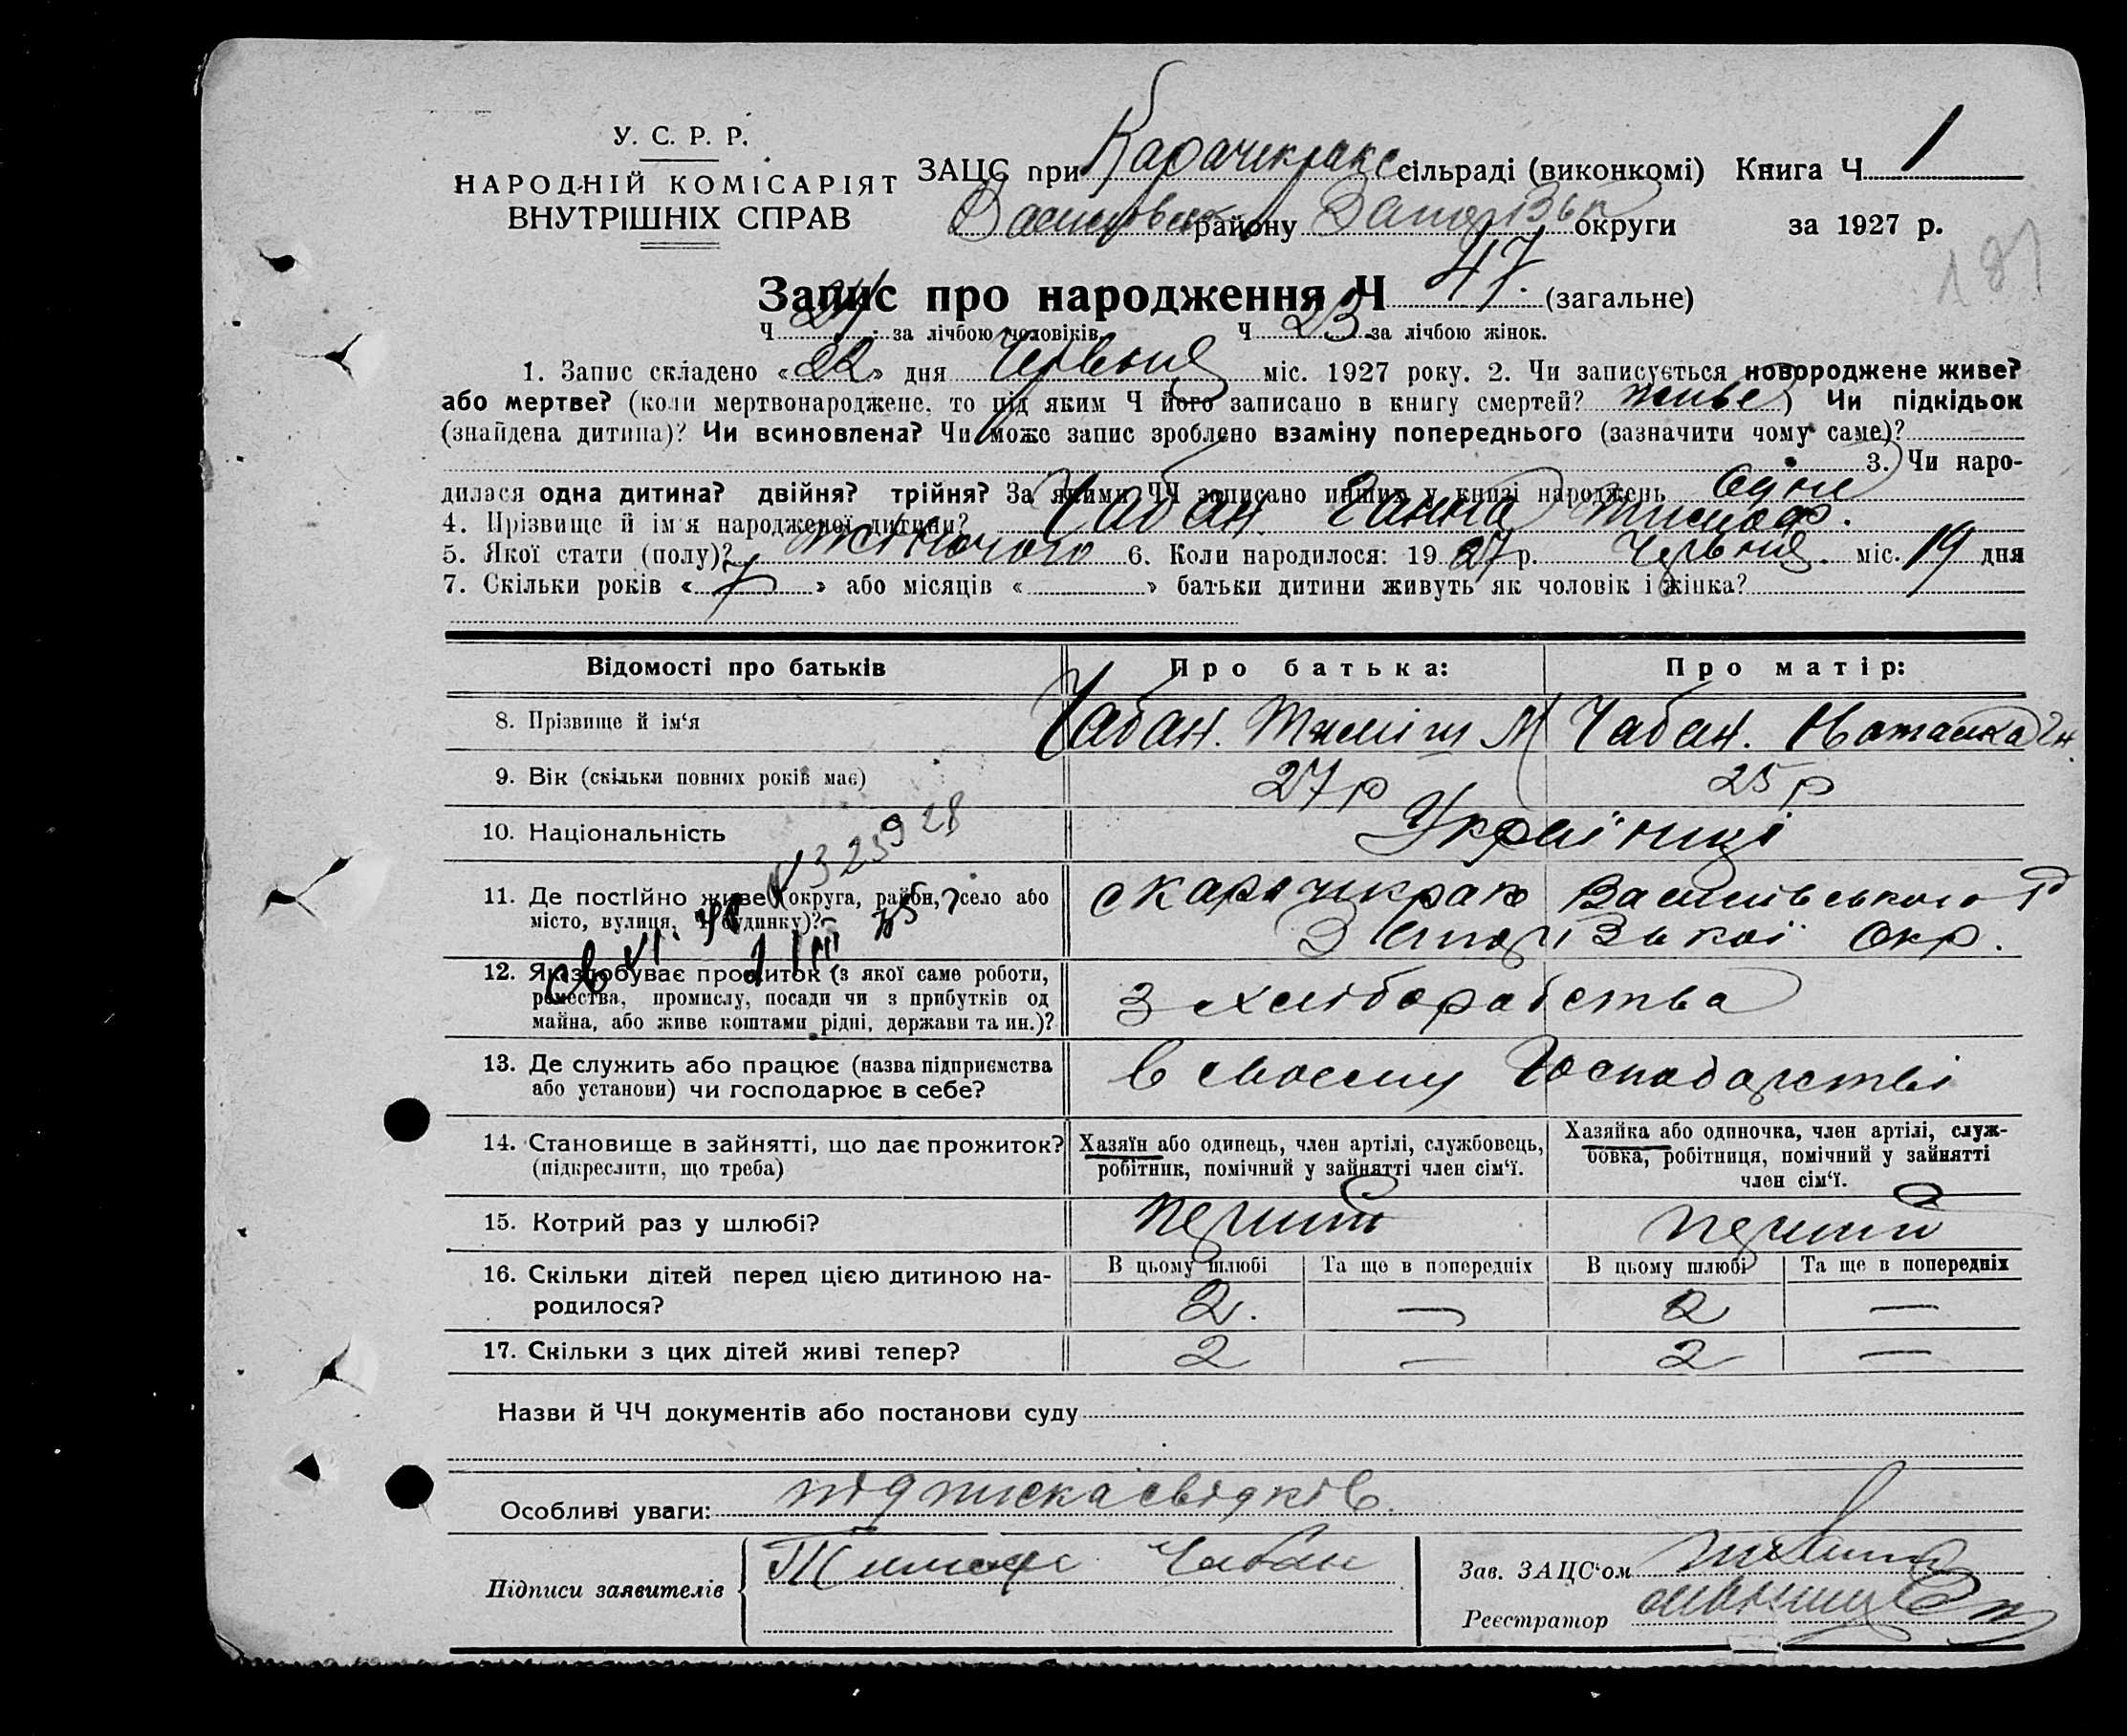 У. С. Р. Р.
НАРОДНІЙ КОМІСАРІЯТ
ВНУТРІШНІХ СПРАВ
ЗАЦС при Карачикракс сільраді (виконкомі) Книга Ч 1
району округи за 1927 р.
181
Запис про народження Ч 47. (загальне)
Ч 24 за лічбою чоловіків. Ч 23 за лічбою жінок.
1. Запис складено «22» дня Червня міс. 1927 року. 2. Чи записується новороджене живе?
або мертве? (коли мертвонароджене, то під яким Ч його записано в книгу смертей? живе) Чи підкідьок
(знайдена дитина)? Чи всиновлена? Чи може запис зроблено взаміну попереднього (зазначити чому саме)?
3. Чи наро-
дилася одна дитина? двійня? трійня? За якими ЧЧ записано инших у книзі народжень
4. Прізвище й ім'я народженої дитини? Чабан Ганна
5. Якої стати (полу)? жіночого 6. Коли народилося: 1927 р. Червня міс. 19 дня
7. Скільки років «7» або місяців « » батьки дитини живуть як чоловік і жінка?
Відомості про батьків Про батька: Про матір:
8. Прізвище й ім'я Чабан. Тиміш М Чабан. Наталка
9. Вік (скільки повних років має) 27 р 25 р
10. Національність Українці
11. Де постійно живе (округа, район, село або
місто, вулиця, Ч будинку)?
с Карачикрак Василівського р
Запорізької Окр.
12. Як здобуває прожиток (з якої саме роботи,
ремества, промислу, посади чи з прибутків од
майна, або живе коштами рідні, держави та ин.)?
З хліборобства
13. Де служить або працює (назва підприємства
або установи) чи господарює в себе?
в своєму Господарстві
14. Становище в зайнятті, що дає прожиток?
(підкреслити, що треба)
Хазяїн або одинець, член артілі, службовець,
робітник, помічний у зайнятті член сім'ї.
Хазяйка або одиночка, член артілі, служ-
бовка, робітниця, помічний у зайнятті
член сім'ї.
15. Котрий раз у шлюбі? перший перший
16. Скільки дітей перед цією дитиною на-
родилося?
В цьому шлюбі Та ще в попередніх В цьому шлюбі Та ще в попередніх
2. — 2 —
17. Скільки з цих дітей живі тепер? 2 — 2 —
Назви й ЧЧ документів або постанови суду
Особливі уваги: підписка свідків
Підписи заявителів Чабан
Зав. ЗАЦС'ом
Реєстратор